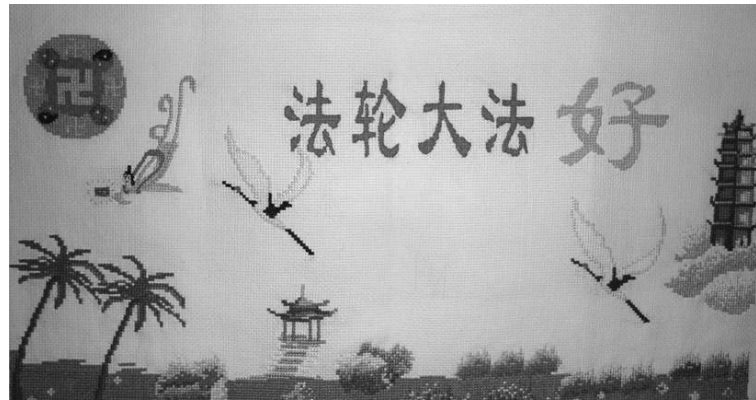 法轮大法好